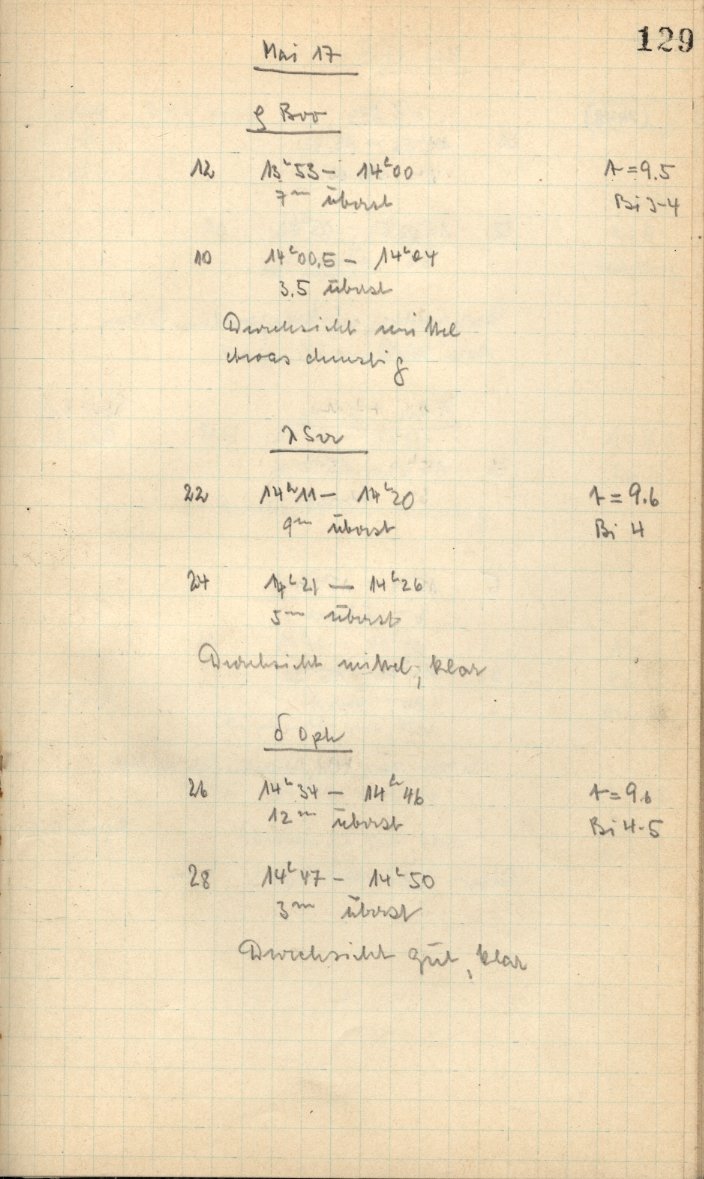 129
Mai 17
ρ Boo
12 13ʰ53 – 14ʰ00 t = 9.5
7ᵐ überst Bi 3-4
10 14ʰ00,5 – 14ʰ04
3,5 überst
Durchsicht mittel
etwas dunstig
λ Ser
22 14ʰ11 – 14ʰ20 t = 9.6
9ᵐ überst Bi 4
24 14ʰ21 — 14ʰ26
5ᵐ überst
Durchsicht mittel, klar
δ Oph
26 14ʰ34 – 14ʰ46 t = 9.6
12ᵐ überst Bi 4-5
28 14ʰ47 – 14ʰ50
3ᵐ überst
Durchsicht gut, klar